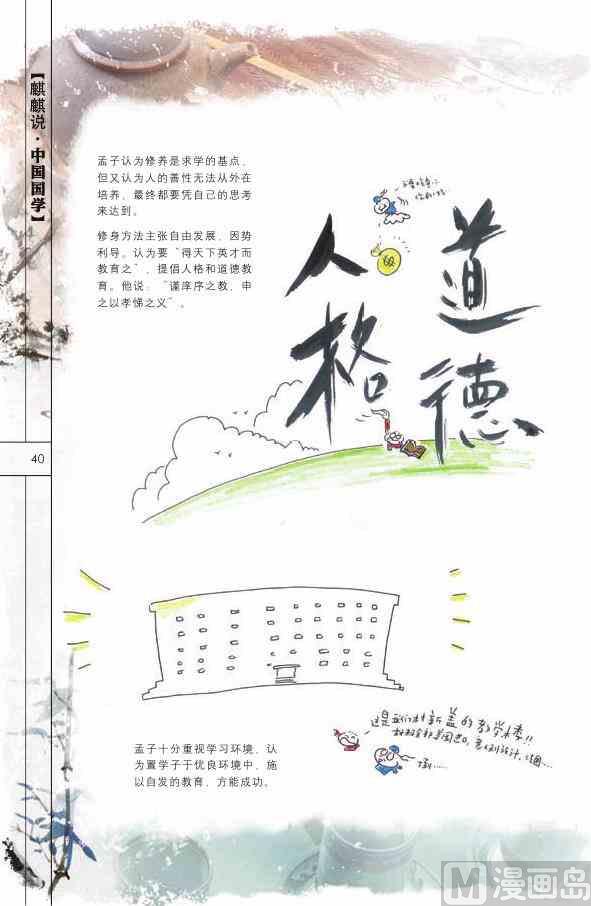 【麒麟说·中国国学】
孟子认为修养是求学的基点，
但又认为人的善性无法从外在
培养，最终都要凭自己的思考
来达到。
修身方法主张自由发展，因势
利导。认为要“得天下英才而
教育之”，提倡人格和道德教
育。他说：“谨庠序之教，申
之以孝悌之义”。
人格
道德
40
这是我们村新盖的教学楼!!
孟子十分重视学习环境，认
为置学子于优良环境中，施
以自发的教育，方能成功。
漫画岛